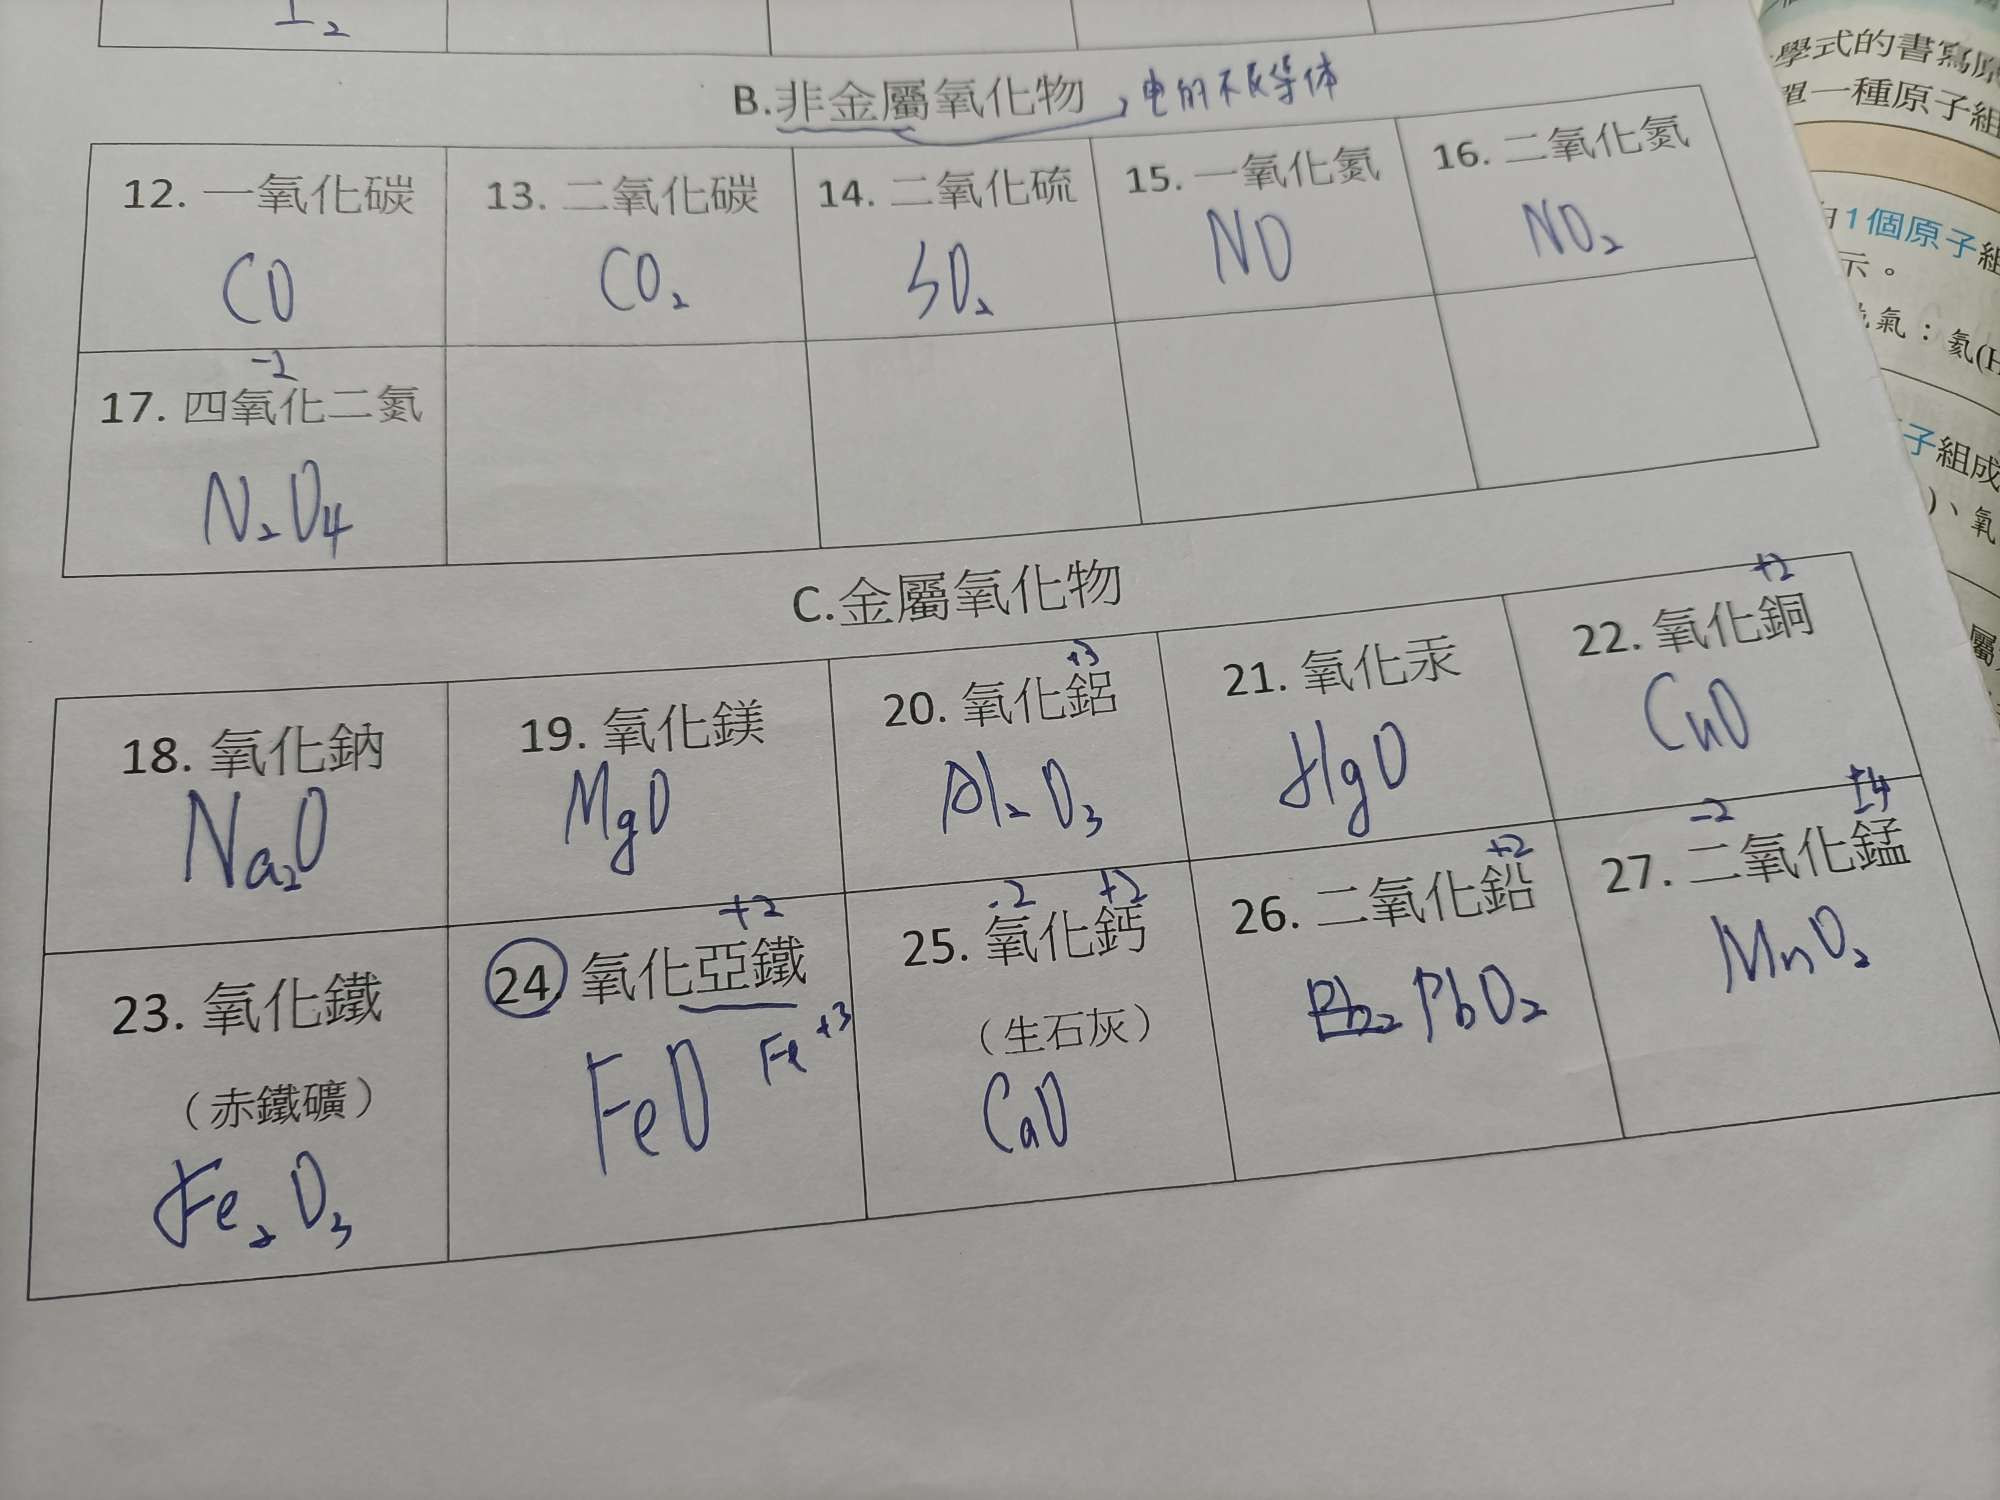 I₂
B.非金屬氧化物,电的不良导体
12. 一氧化碳
CO
13. 二氧化碳
CO₂
14. 二氧化硫
SO₂
15. 一氧化氮
NO
16. 二氧化氮
NO₂
-2
17. 四氧化二氮
N₂O₄
C.金屬氧化物
18. 氧化鈉
Na₂O
19. 氧化鎂
MgO
+3
20. 氧化鋁
Al₂O₃
21. 氧化汞
HgO
+2
22. 氧化銅
CuO
23. 氧化鐵
（赤鐵礦）
Fe₂O₃
+2
24. 氧化亞鐵
Fe+3
FeO
-2 +2
25. 氧化鈣
（生石灰）
CaO
+2
26. 二氧化鉛
PbO₂
-2 +4
27. 二氧化錳
MnO₂
學式的書寫原
單一種原子組
由1個原子組
示。
氣：氦(H
子組成
)、氧
屬